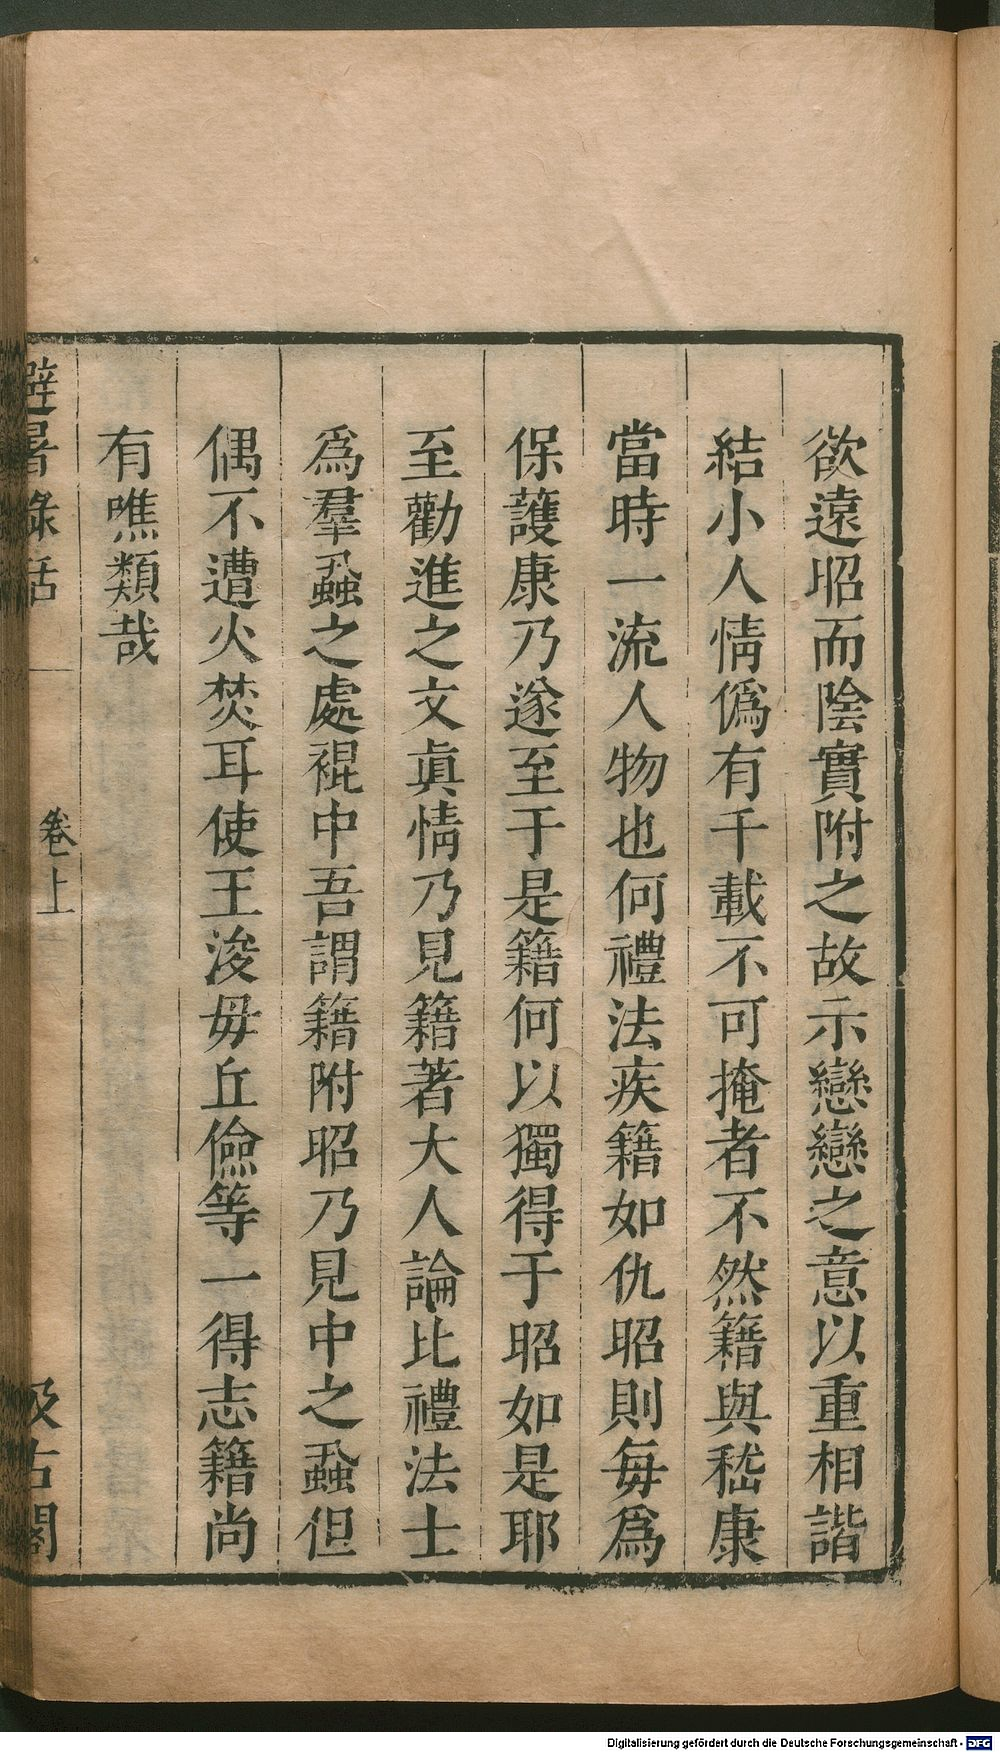 欲遠昭而陰實附之故示戀戀之意以重相諧
結小人情僞有千載不可掩者不然籍與嵇康
當時一流人物也何禮法疾籍如仇昭則每爲
保護康乃遂至于是籍何以獨得于昭如是耶
至勸進之文眞情乃見籍著大人論比禮法士
爲羣蝨之處褌中吾謂籍附昭乃見中之蝨但
偶不遭火焚耳使王浚毋丘儉等一得志籍尚
有噍類哉
避暑錄話
卷上
汲古閣
Digitalisierung gefördert durch die Deutsche Forschungsgemeinschaft - DFG